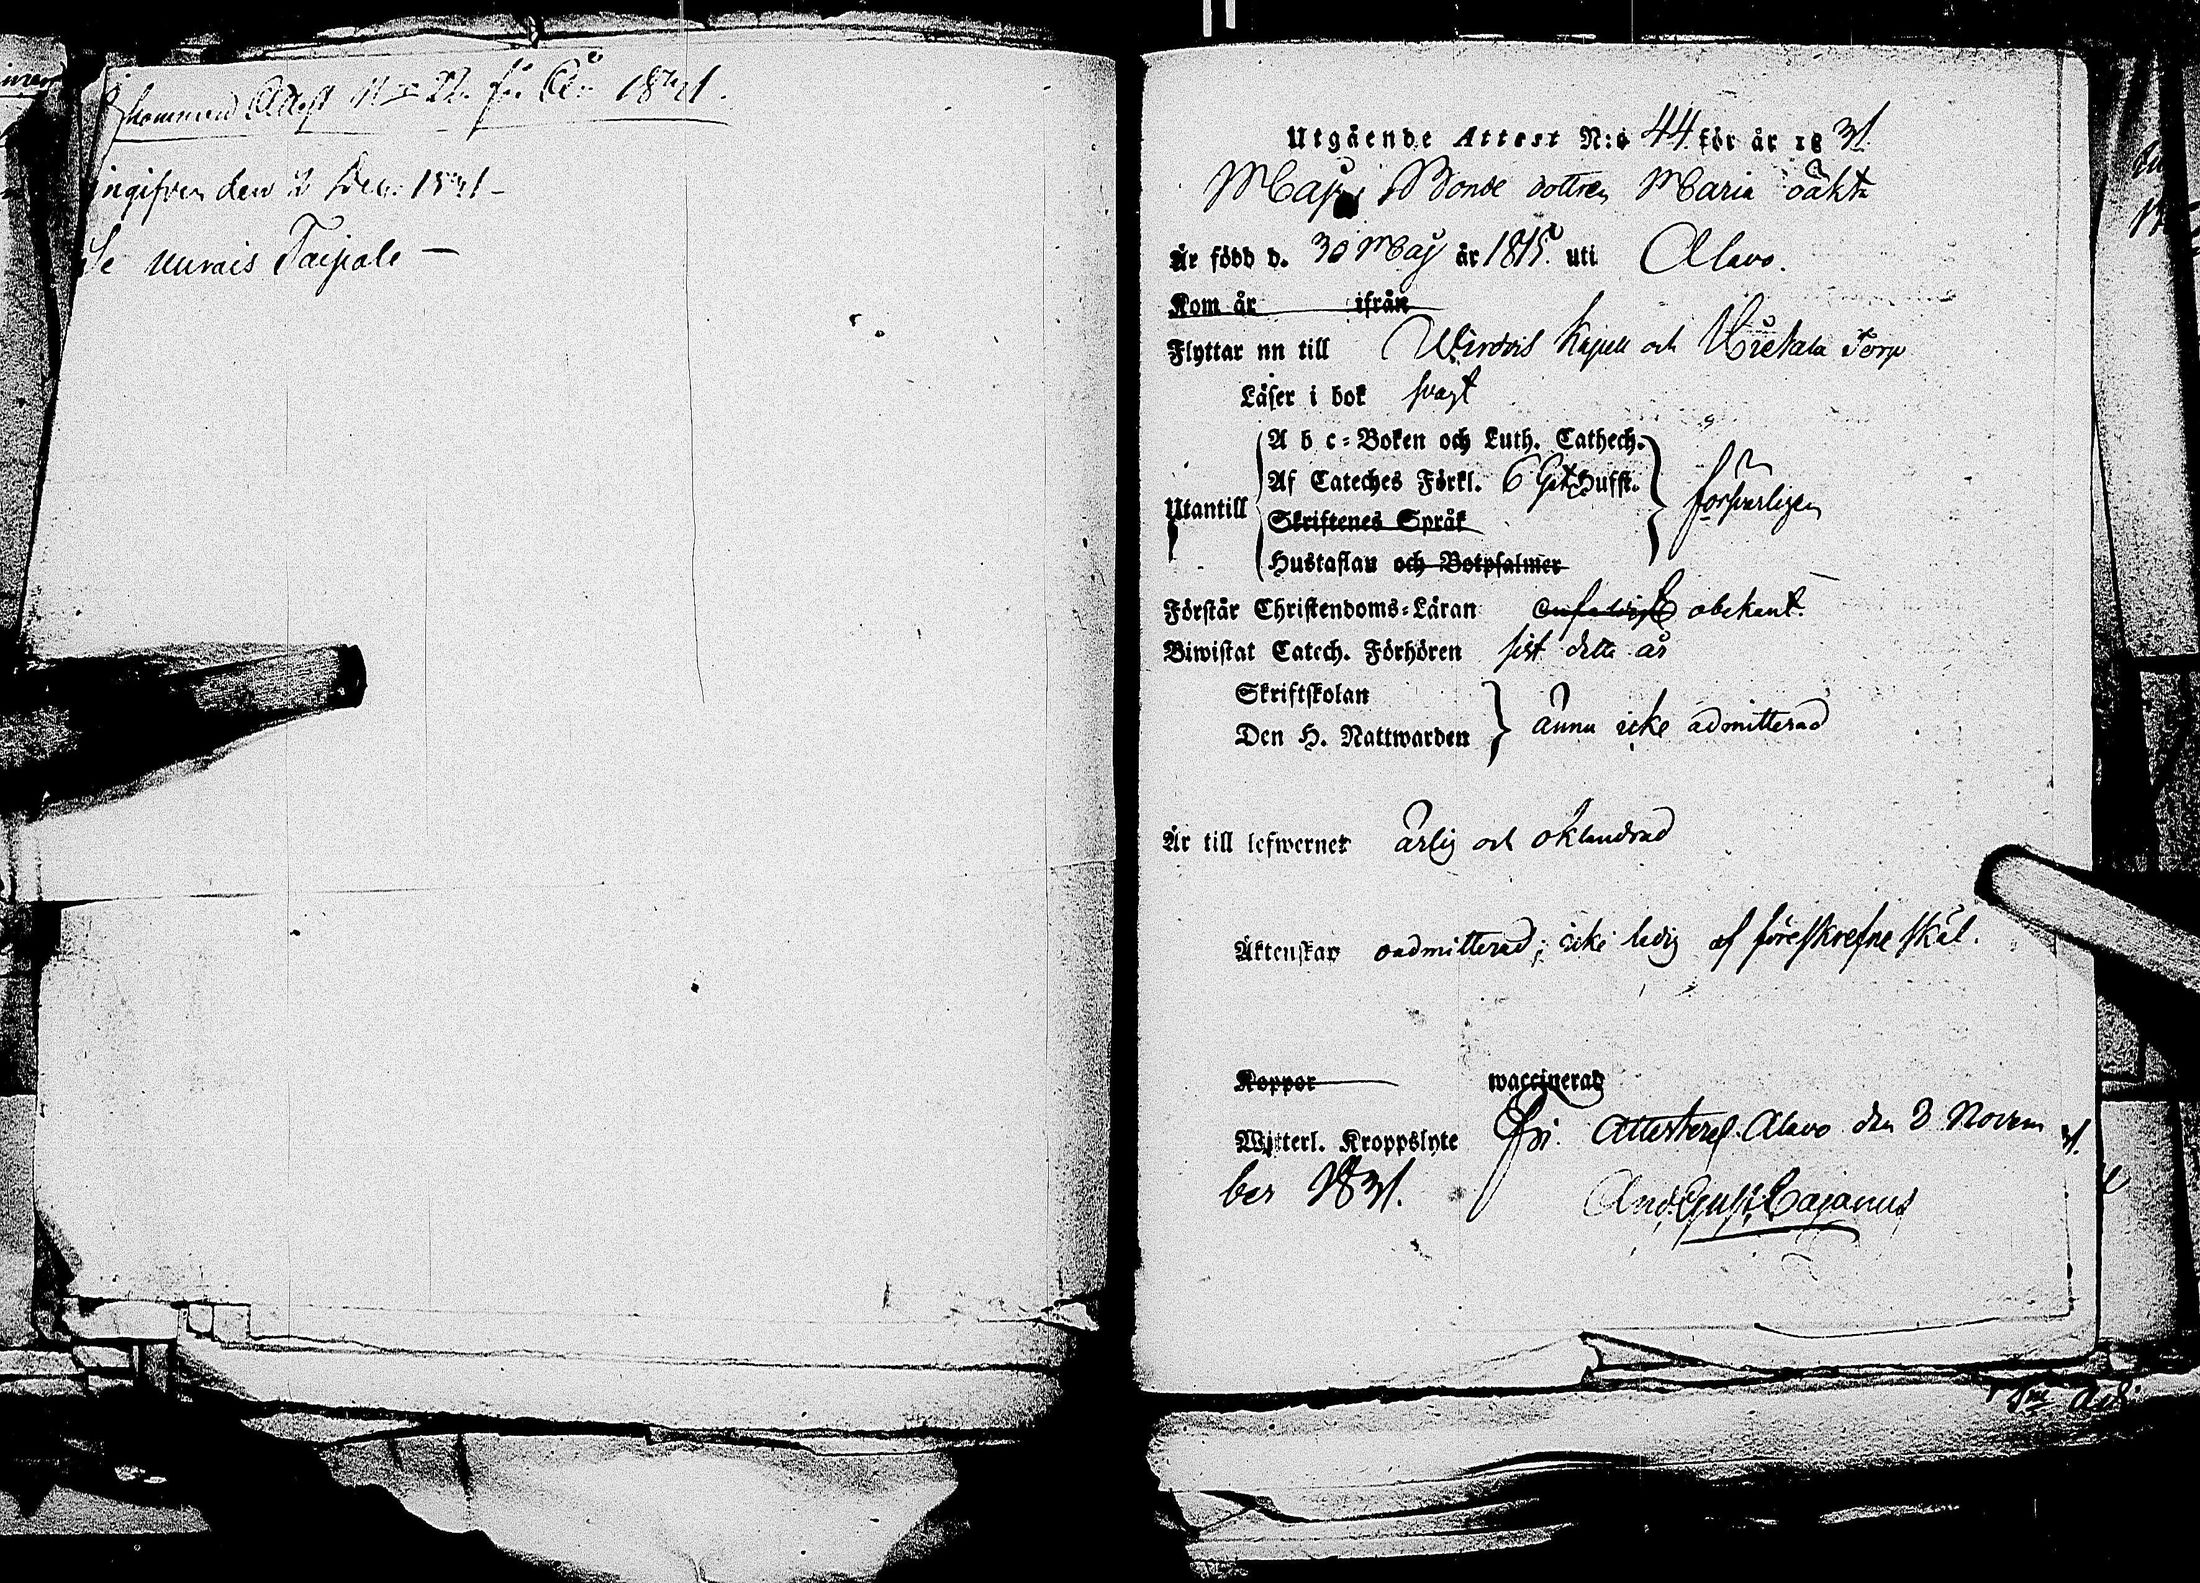 kommend Attest No 22. för År 1831.
ingifven den 2 Dec. 1831 –
Se Murais Taipale –
Utgående Attest N:o 44 för år 1831.
Bonde dottren Maria oäkta
Är född d. 30 Maj år 1815. uti Alavo.
Kom år ifrån
Flyttar nn till Wirdois Kapell och Torp
Läser i bok svagt
A b c-Boken och Luth. Cathech.
Af Cateches Förkl. 6 Hufst.
Utantill försvarligen
Skriftenes Språk
Hustaflan och Botpsalmer
Förstår Christendoms-Läran enfaldigt obekant.
Biwistat Catech. Förhören sist detta år
Skriftskolan
Den H. Nattwarden ännu icke admitterad
Är till lefwernet ärlig och oklandrad
Äktenskap oadmitterad; icke ledig af föreskrefne skäl.
Koppor waccinerad
Witterl. Kroppslyte fri. Attesteras. Alavo den 3 Novem
ber 1831.
And. Gust. Cajanus